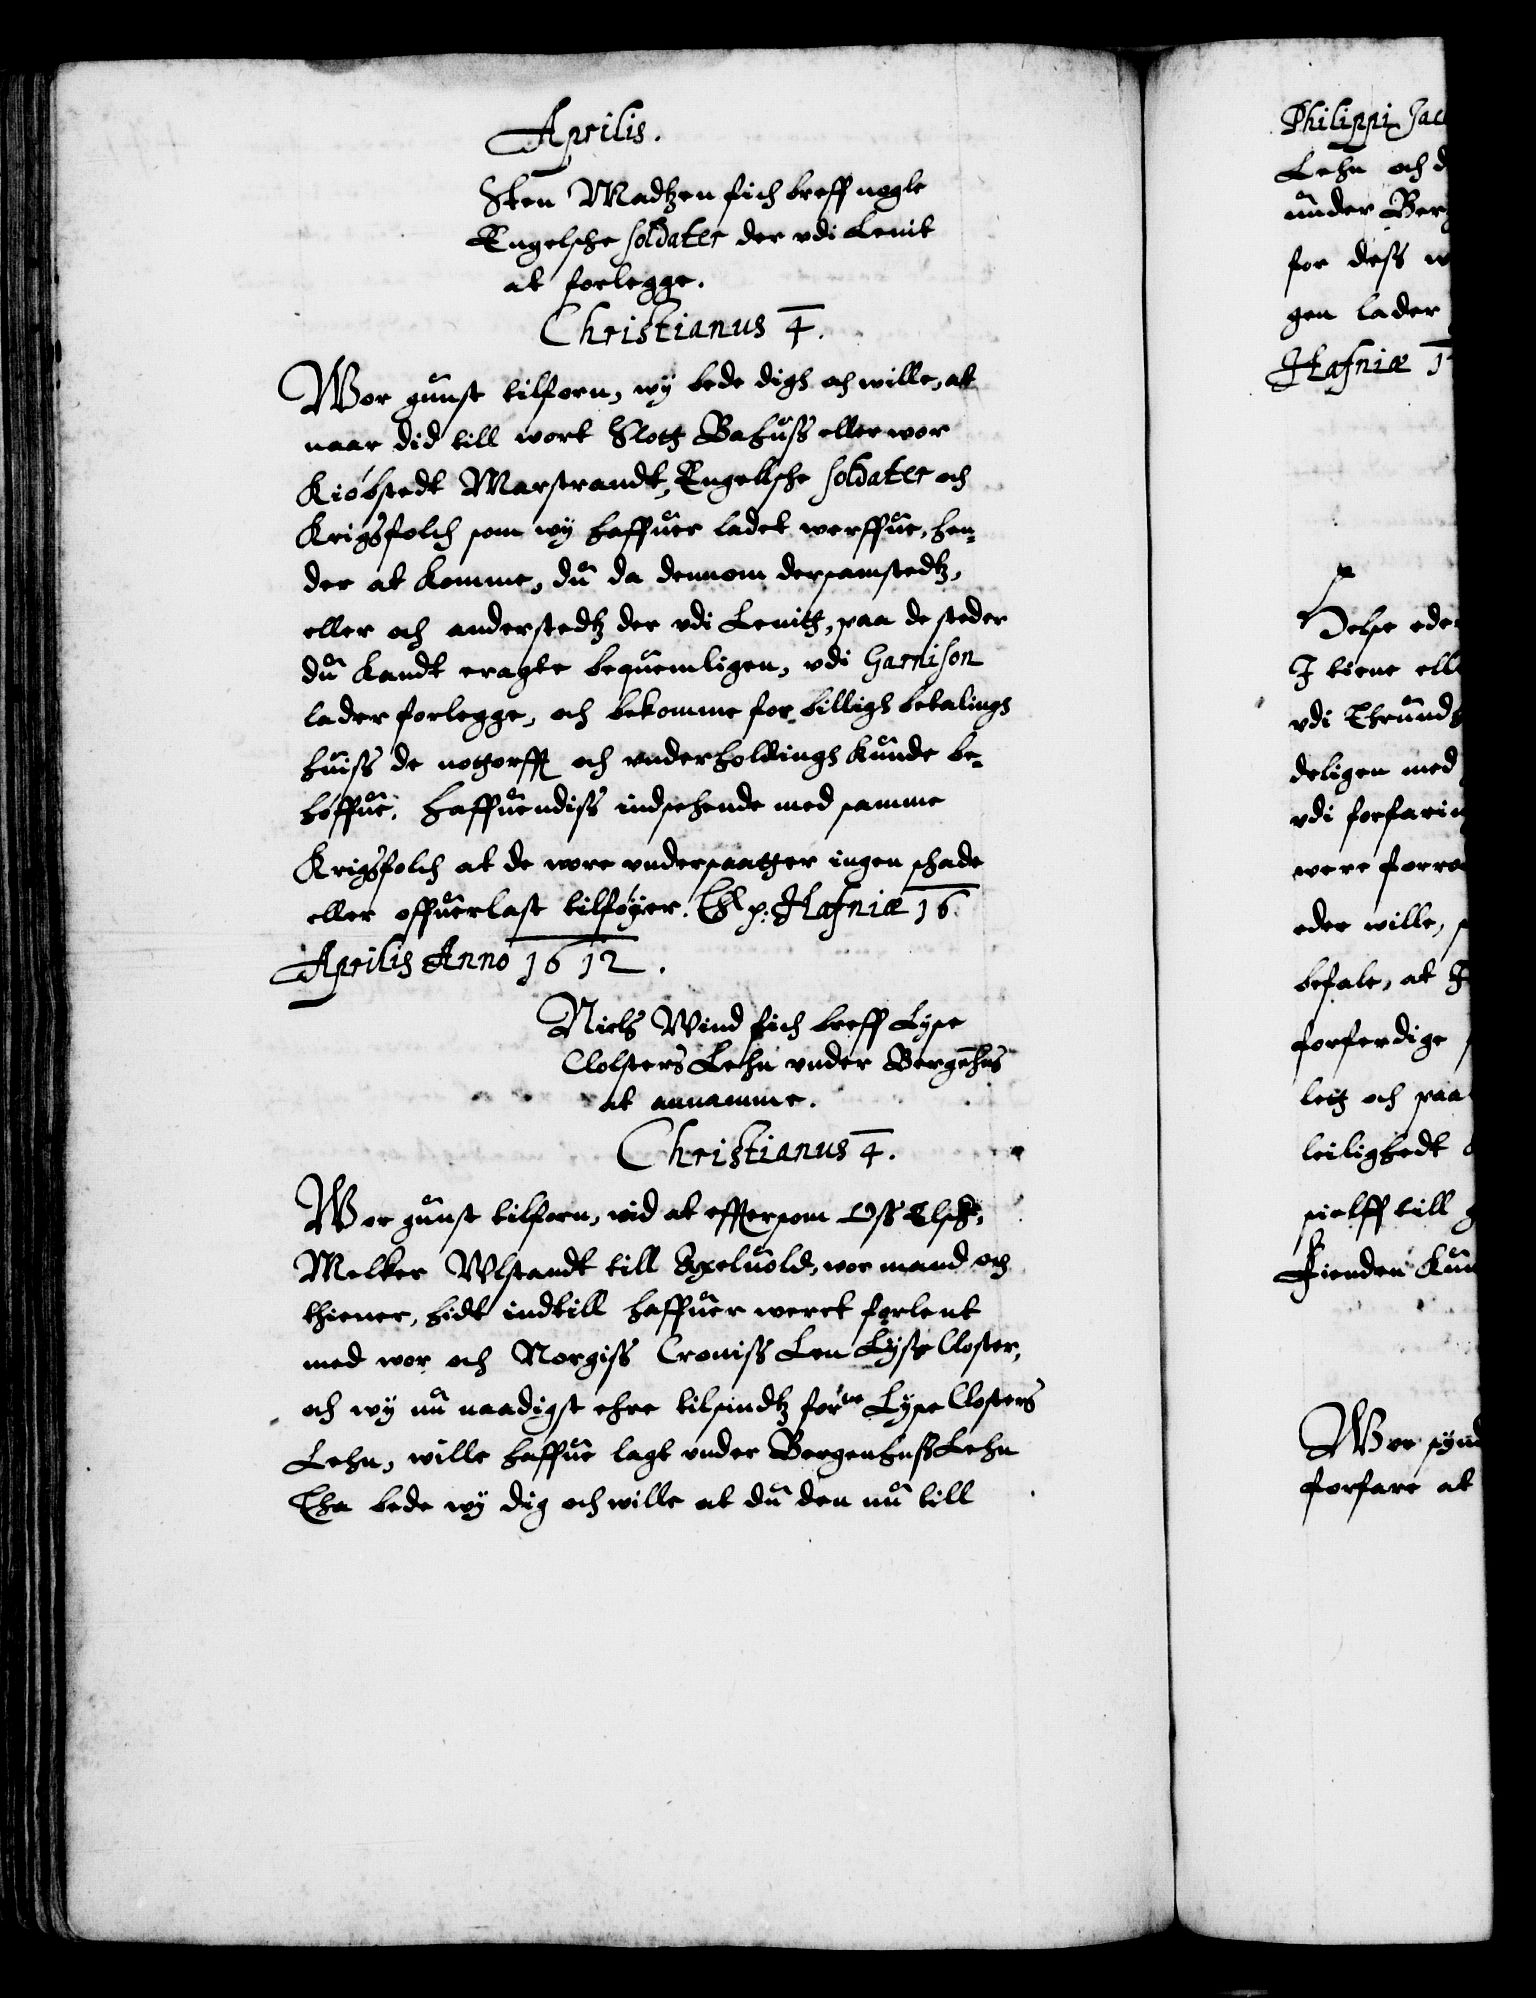 Aprilis.
Sten Madtzen fich breff nogle
Engelsche soldater der vdi Lenit
at forlegge.
Christianus 4.
Wor gunst tilforn, wy bede digh och wille, at
naar did till wort Slotz Bahuss eller wor
Kiøbstedt Marstrandt, Engelsche soldater och
Krigsfolch som wy haffuer ladet werffue, hen-
der at komme, du da dennom dersamstedtz,
eller och anderstedtz der vdi Lenitz, paa de steder
du kandt eragte bequemligen, vdi Garnison
lader forlegge, och bekomme for billigh betalingh
huiss de nothorfft och vnderholdingh kunde be-
høffue, haffuendiss indsehende med samme
Krigsfolch at de wore vndersaatzer ingen schade
eller offuerlast tilføyer. Thl p: Hafniæ 16.
Aprilis Anno 1612.
Niels Wind fich breff Lyse
Closters Lehn vnder Bergenhus
at annamme.
Christianus 4.
Wor gunst tilforn, wid at efftersom Oss Elsch.
Melker Wlstandt till Axeluold, wor mand och
thiener, hidt indtill haffuer weret forlent
med wor och Norgiss Croniss Len Lysse Closter,
och wy nu naadigst ehre tilsindtz forne Lyse Closters
Lehn, wille haffue lagt vnder Bergenhuss Lehn
Tha bede wy dig och wille at du den nu till
Philippi Jac
Lehn och d
under Ber
for dess w
gen lader
Hafniæ 1
Helse ede
J tiene ell
vdi Thrundh
deligen med
vdi forfarin
were forro
eder wille,
befale, at J
forferdige
leitz och paa
leilighedt
sielff till
Fienden kun
Wor synd
forfare at